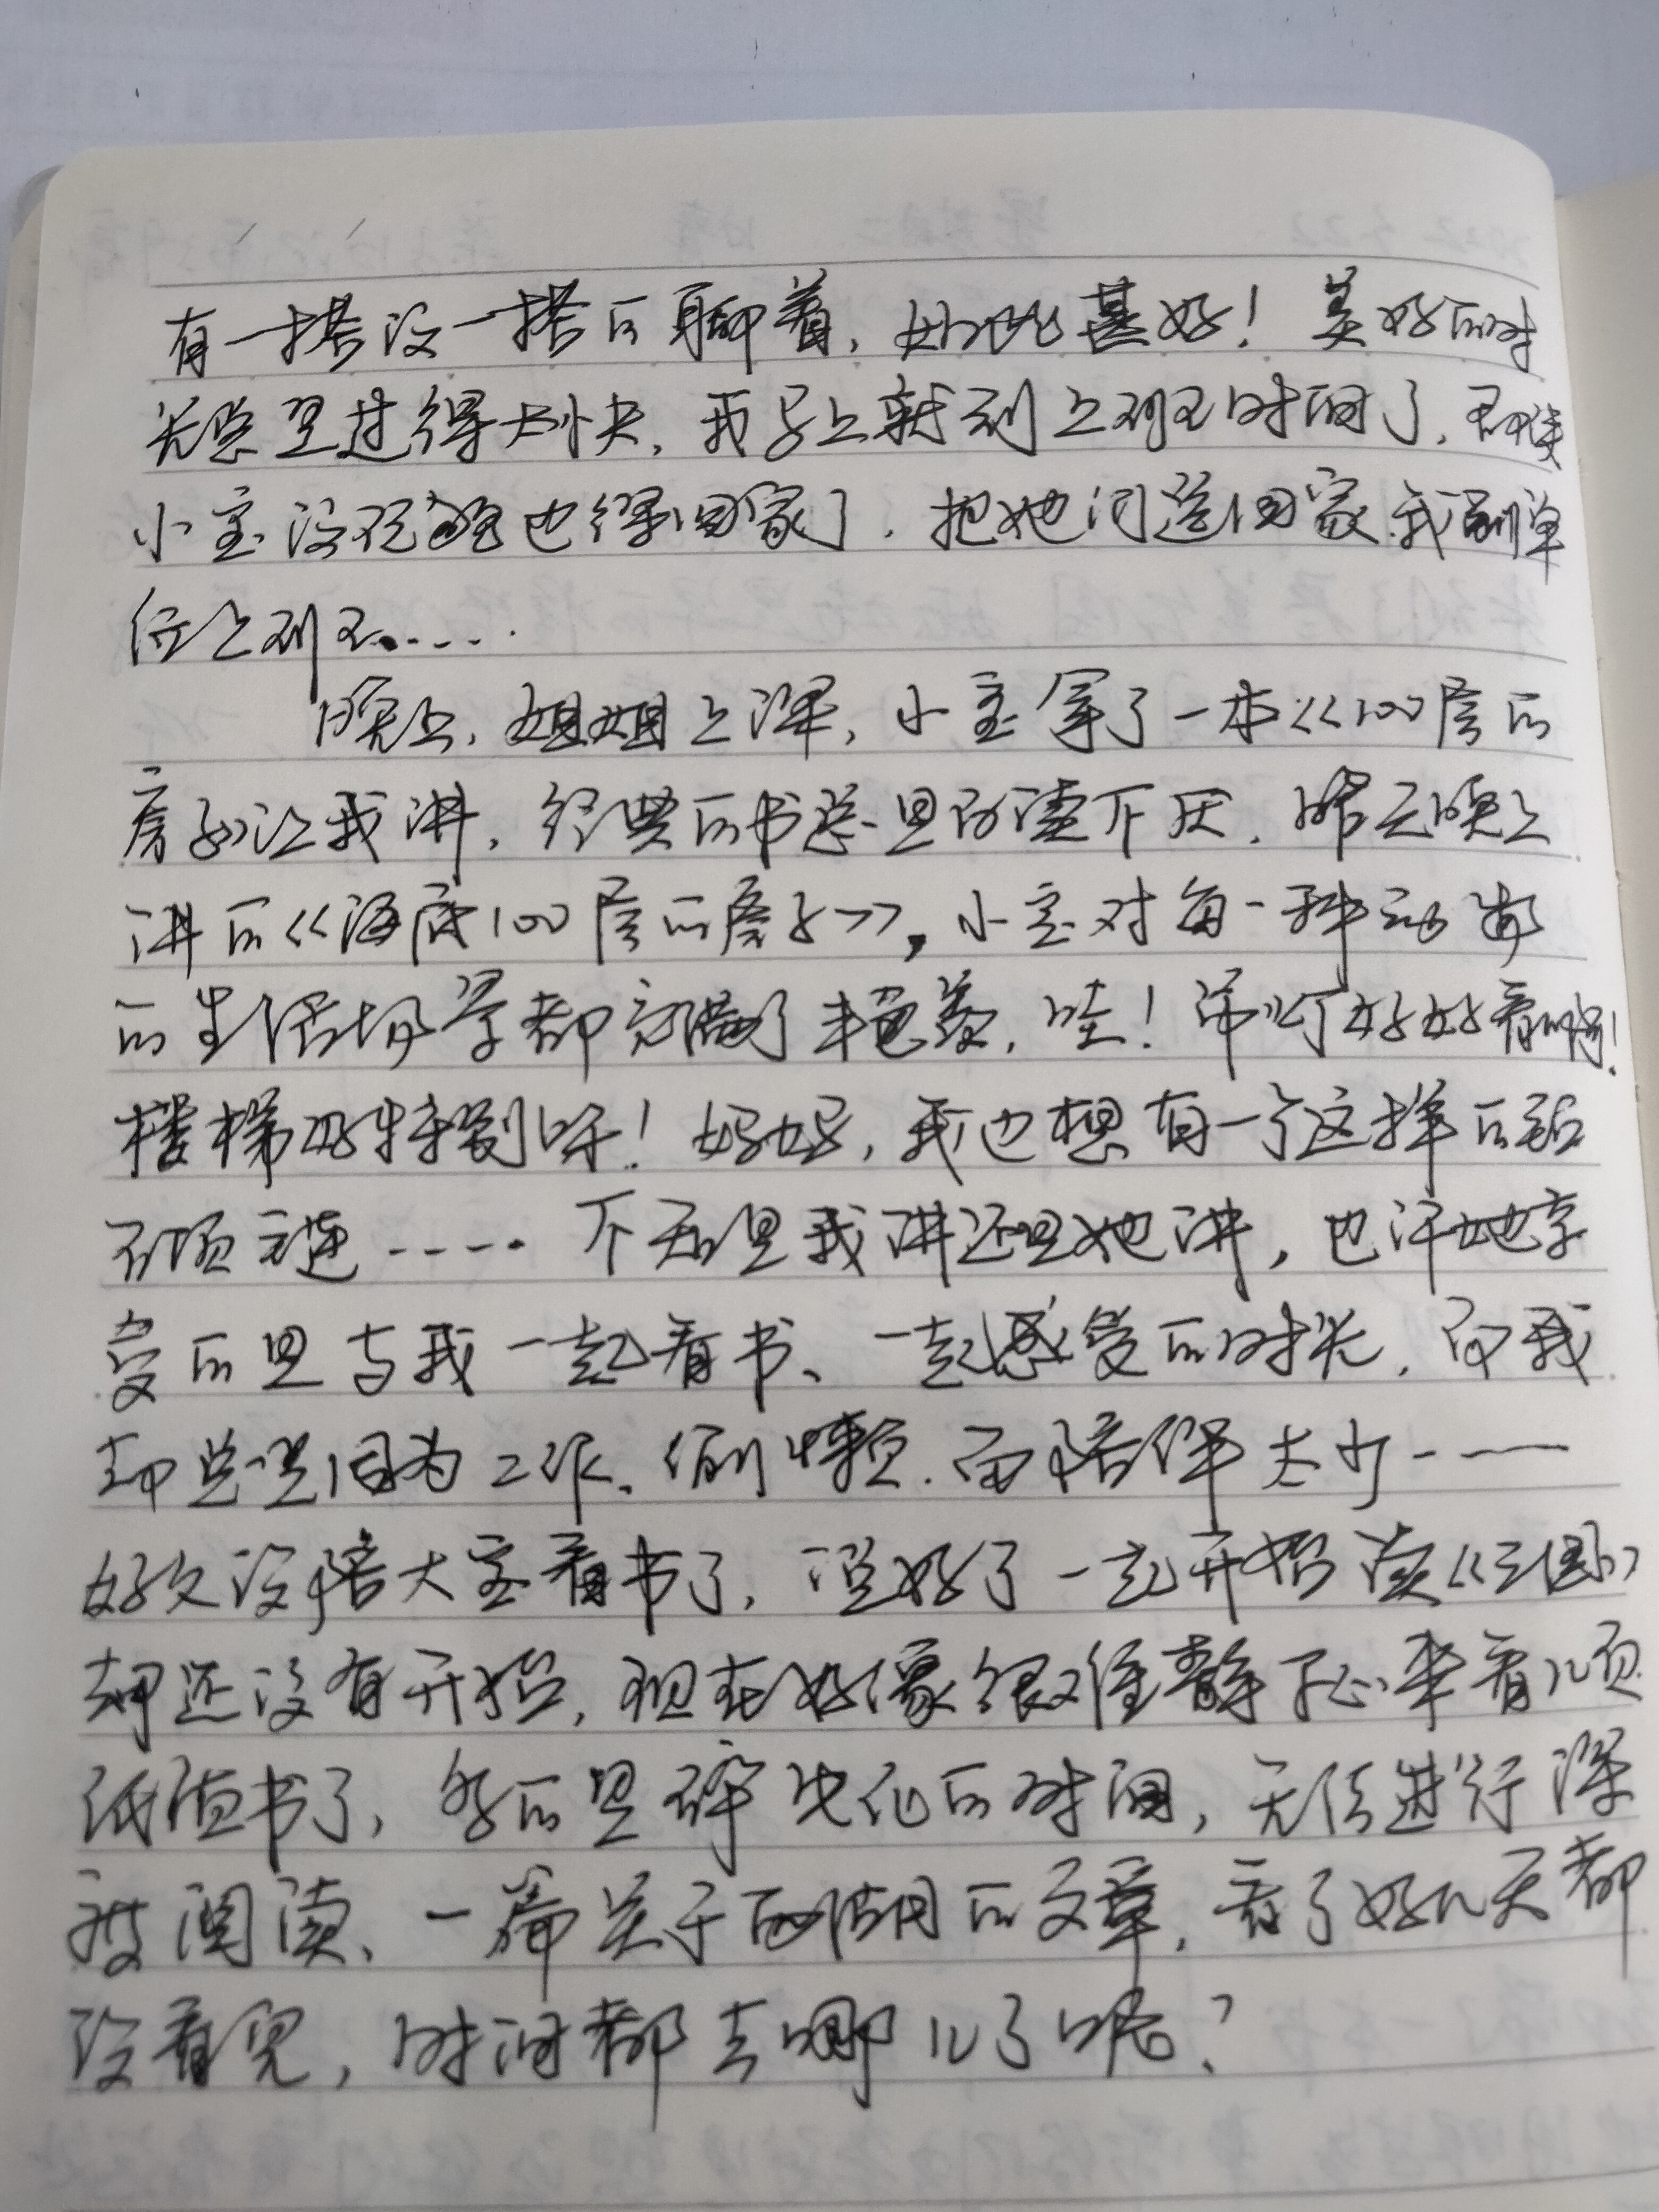 有一搭没一搭的聊着,如此甚好!美好的时
光总是过得太快,我马上就到上班时间了,
小宝没玩够也得回家了,把她们送回家我到单
位上班……
晚上,姐姐上课,小宝拿了一本《100层的
房子》让我讲,经典的书总是百读不厌,昨天晚上
讲的《海底100层的房子》,小宝对每一种动物
的生活场景都充满了兴趣,哇!吊灯好好看啊!
楼梯好特别呀!妈妈,我也想有一个这样的钻
石项链……不知是我讲还是她讲,也许她享
受的是与我一起看书、一起感受的时光,而我
却总是因为工作、偷懒,而陪伴太少……
好久没陪大宝看书了,说好了一起开始读《三国》
却还没有开始,现在好像很难静下心来看几页
纸质书了,多的是碎片化的时间,无法进行深
度阅读、一篇关于西湖的文章,看了好几天都
没看完,时间都去哪儿了呢?